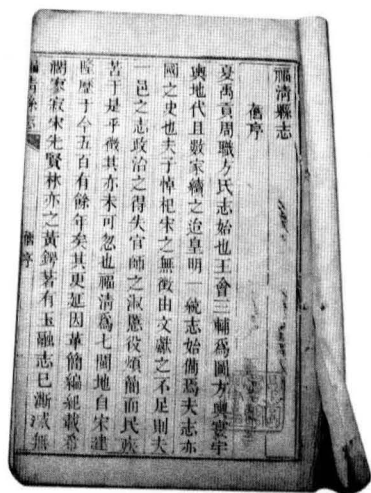 福清縣志
舊序
夏禹貢周職方氏志始也王會三輔爲圖方輿寰宇
輿地代且數家續之迨皇明一統志始備焉夫志亦
國之史也夫子悼杞宋之無徵由文獻之不足則夫
一邑之志政治之得失官師之淑慝役煩簡而民疾
苦于是乎徵其亦未可忽也福清爲七閩地自宋建
隆歷于今五百有餘年矣其更延因革簡編紀載希
濶寥寂宋先賢林亦之黃鍔著有玉融志已漸滅無
福清縣志
舊序